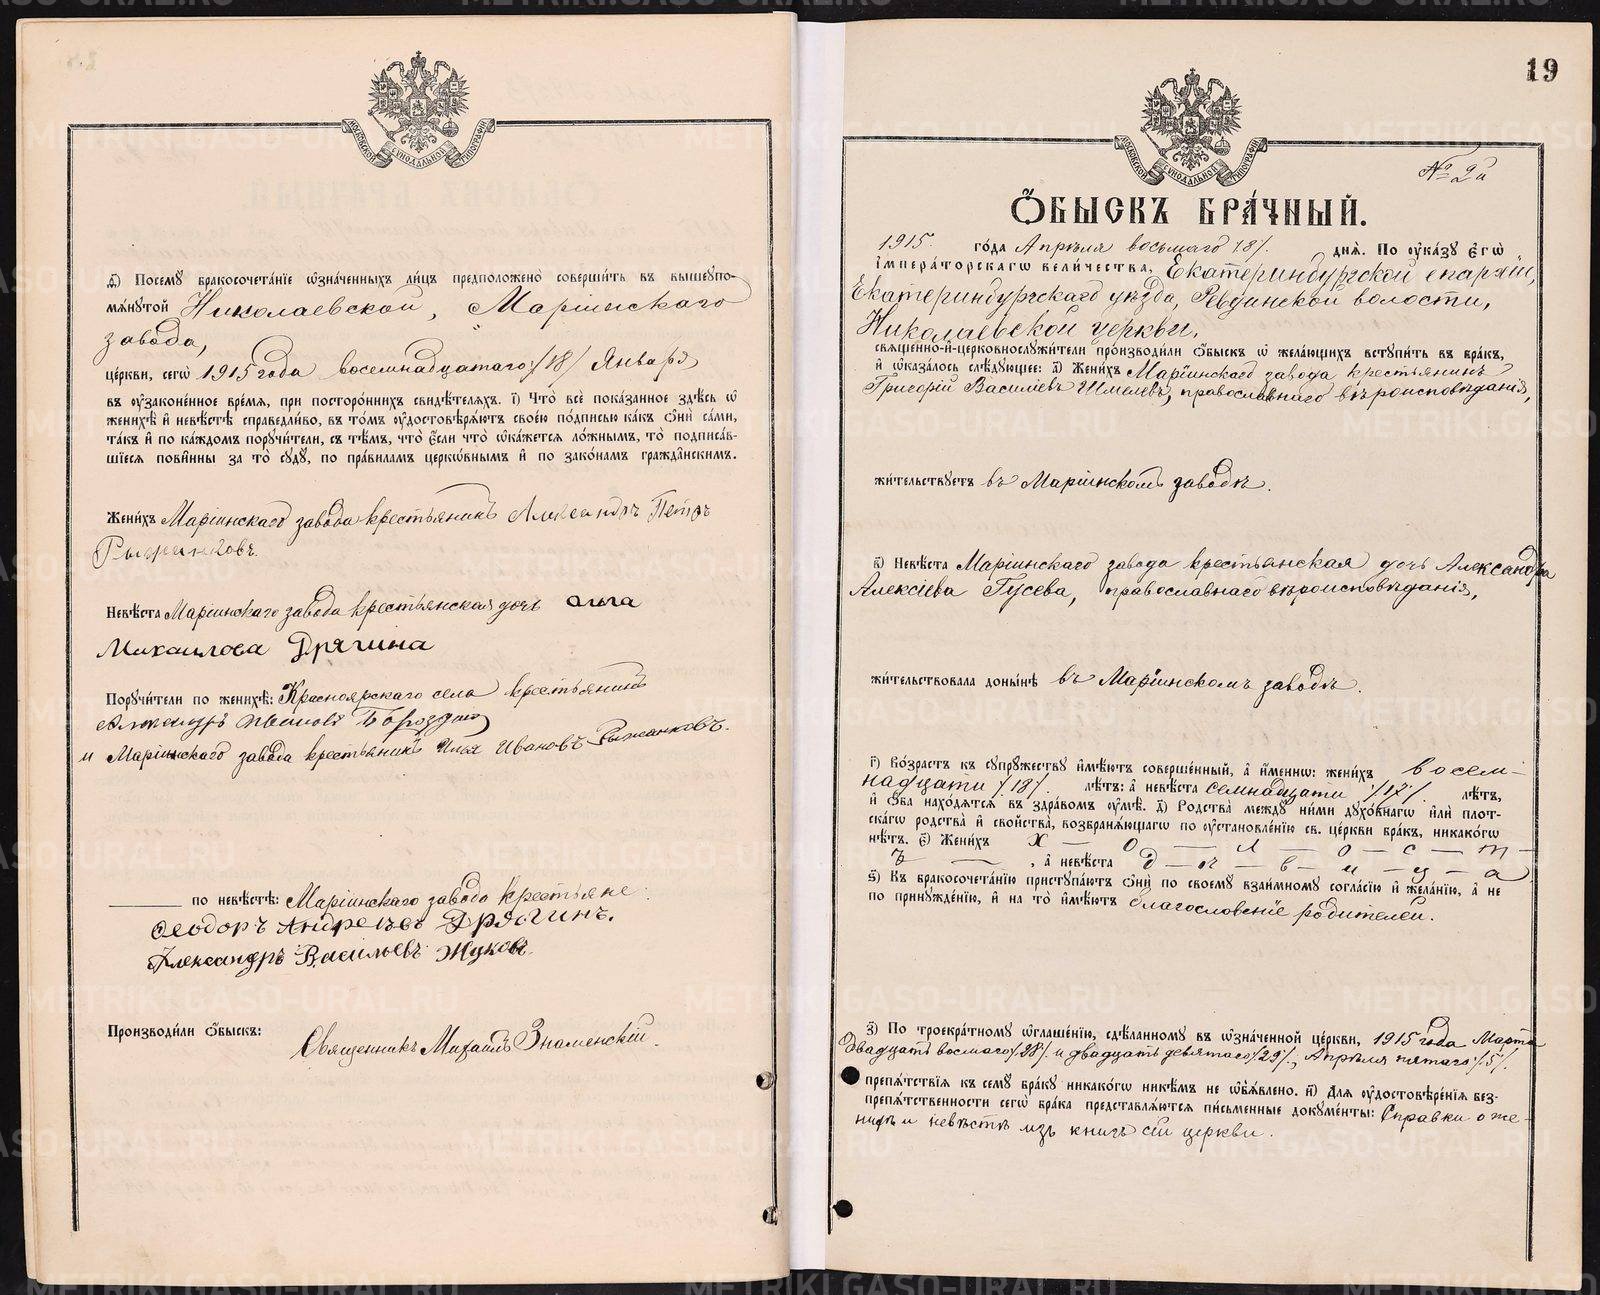 МОСКОВСКОЙ СѴНОДАЛЬНОЙ ТИПОГРАФІИ
ѳ҃) Посемꙋ бракосочета́нїе ѡ҆зна́ченныхъ ли́цъ предположено̀ соверши́ть въ вышеꙋпо-
мѧ́нꙋтой Николаевской, Маріинскаго
завода,
це́ркви, сегѡ̀ 1915 года восемнадцатаго /18/ Января
въ ᲂу҆зако́ненное вре́мѧ, при посторо́ннихъ свидѣ́телѧхъ. і҃) Что̀ всѐ пока́занное здѣ́сь ѡ҆
женихѣ̀ и҆ невѣ́стѣ справедли́во, въ то́мъ ᲂу҆достовѣрѧ́ютъ свое́ю по́дписью ка́къ ѻ҆нѝ са́ми,
та́къ и҆ по ка́ждомъ порꙋчи́тели, съ тѣ́мъ, что̀ є҆́сли что̀ ѡ҆ка́жетсѧ ло́жнымъ, то̀ подписа́в-
шїесѧ пови́нны за то̀ сꙋдꙋ̀, по пра́виламъ церко́внымъ и҆ по зако́намъ гражда́нскимъ.
Жени́хъ Маріинскаго завода крестьянинъ Александръ Петръ
Рыжанковъ.
Невѣ́ста Маріинскаго завода крестьянская дочь Ольга
Михаилова Дрягина
Порꙋчи́тели по женихѣ̀: Красноярскаго села крестьянинъ
Александръ Ивановъ
и Маріинскаго завода крестьянинъ Илья Ивановъ Рыжанковъ.
по невѣ́стѣ: Маріинскаго завода крестьяне:
Ѳеодоръ Андреевъ Дрягинъ.
Александръ Васильевъ Жуковъ.
Производи́ли ѻ҆́быскъ: Священникъ Михаилъ Знаменскій.
19
МОСКОВСКОЙ СѴНОДАЛЬНОЙ ТИПОГРАФІИ
№ 2й
Ѻ҆́БЫСКЪ БРА́ЧНЫЙ.
1915 го́да Апрѣля восьмаго /8/. днѧ̀. По ᲂу҆ка́зꙋ Є҆гѡ̀
І҆мпера́торскагѡ вели́чества, Екатеринбургской епархіи,
Екатеринбургскаго уѣзда, Ревдинской волости,
Николаевской церкви,
свѧще́нно-и҆-церковнослꙋжи́тели производи́ли ѻ҆́быскъ ѡ҆ жела́ющихъ встꙋпи́ть въ бра́къ,
и҆ ѡ҆каза́лось слѣ́дꙋющее: а҃) Жени́хъ Маріинскаго завода крестьянинъ
Григорій Василіевъ Шмелевъ, православнаго вѣроисповѣданія,
жи́тельствꙋетъ въ Маріинскомъ заводѣ.
в҃) Невѣ́ста Маріинскаго завода крестьянская дочь Александра
Алексіева Гусева, православнаго вѣроисповѣданія,
жи́тельствовала доны́нѣ въ Маріинскомъ заводѣ.
г҃) Во́зрастъ къ сꙋпрꙋ́жествꙋ и҆мѣ́ютъ соверше́нный, а҆ и҆́менно: жени́хъ восем-
надцати /18/. лѣ́тъ: а҆ невѣ́ста семнадцати /17/. лѣ́тъ,
и҆ ѻ҆́ба нахо́дѧтсѧ въ здра́вомъ ᲂу҆мѣ̀. д҃) Родства̀ междꙋ̀ ни́ми дꙋхо́внагѡ и҆лѝ пло́т-
скагѡ родства̀ и҆ сво́йства, возбранѧ́ющагѡ по ᲂу҆становле́нїю св. це́ркви бра́къ, никако́гѡ
нѣ́тъ. є҃) Жени́хъ х — о — л — о — с — т —
ъ — , а҆ невѣ́ста д — ѣ — в — и — ц — а
ѕ҃) Къ бракосочета́нїю пристꙋпа́ютъ ѻ҆нѝ по своемꙋ̀ взаи́мномꙋ согла́сїю и҆ жела́нїю, а҆ не
по принꙋжде́нїю, и҆ на то̀ и҆мѣ́ютъ благословеніе родителей.
з҃) По троекра́тномꙋ ѡ҆глаше́нїю, сдѣ́ланномꙋ въ ѡ҆зна́ченной це́ркви, 1915 года Марта
двадцать восмаго /28/ и двадцать девятаго /29/, Апрѣля пятаго /5/.
препѧ́тствїѧ къ семꙋ̀ бра́кꙋ никако́гѡ никѣ́мъ не ѡ҆б̾ѧ́влено. и҃) Длѧ̀ ᲂу҆достовѣре́нїѧ без-
препѧ́тственности сегѡ̀ бра́ка представлѧ́ютсѧ пи́сьменные докꙋме́нты: Справки о же-
нихѣ и невѣстѣ изъ книгъ сей церкви.
METRIKI.GASO-URAL.RU